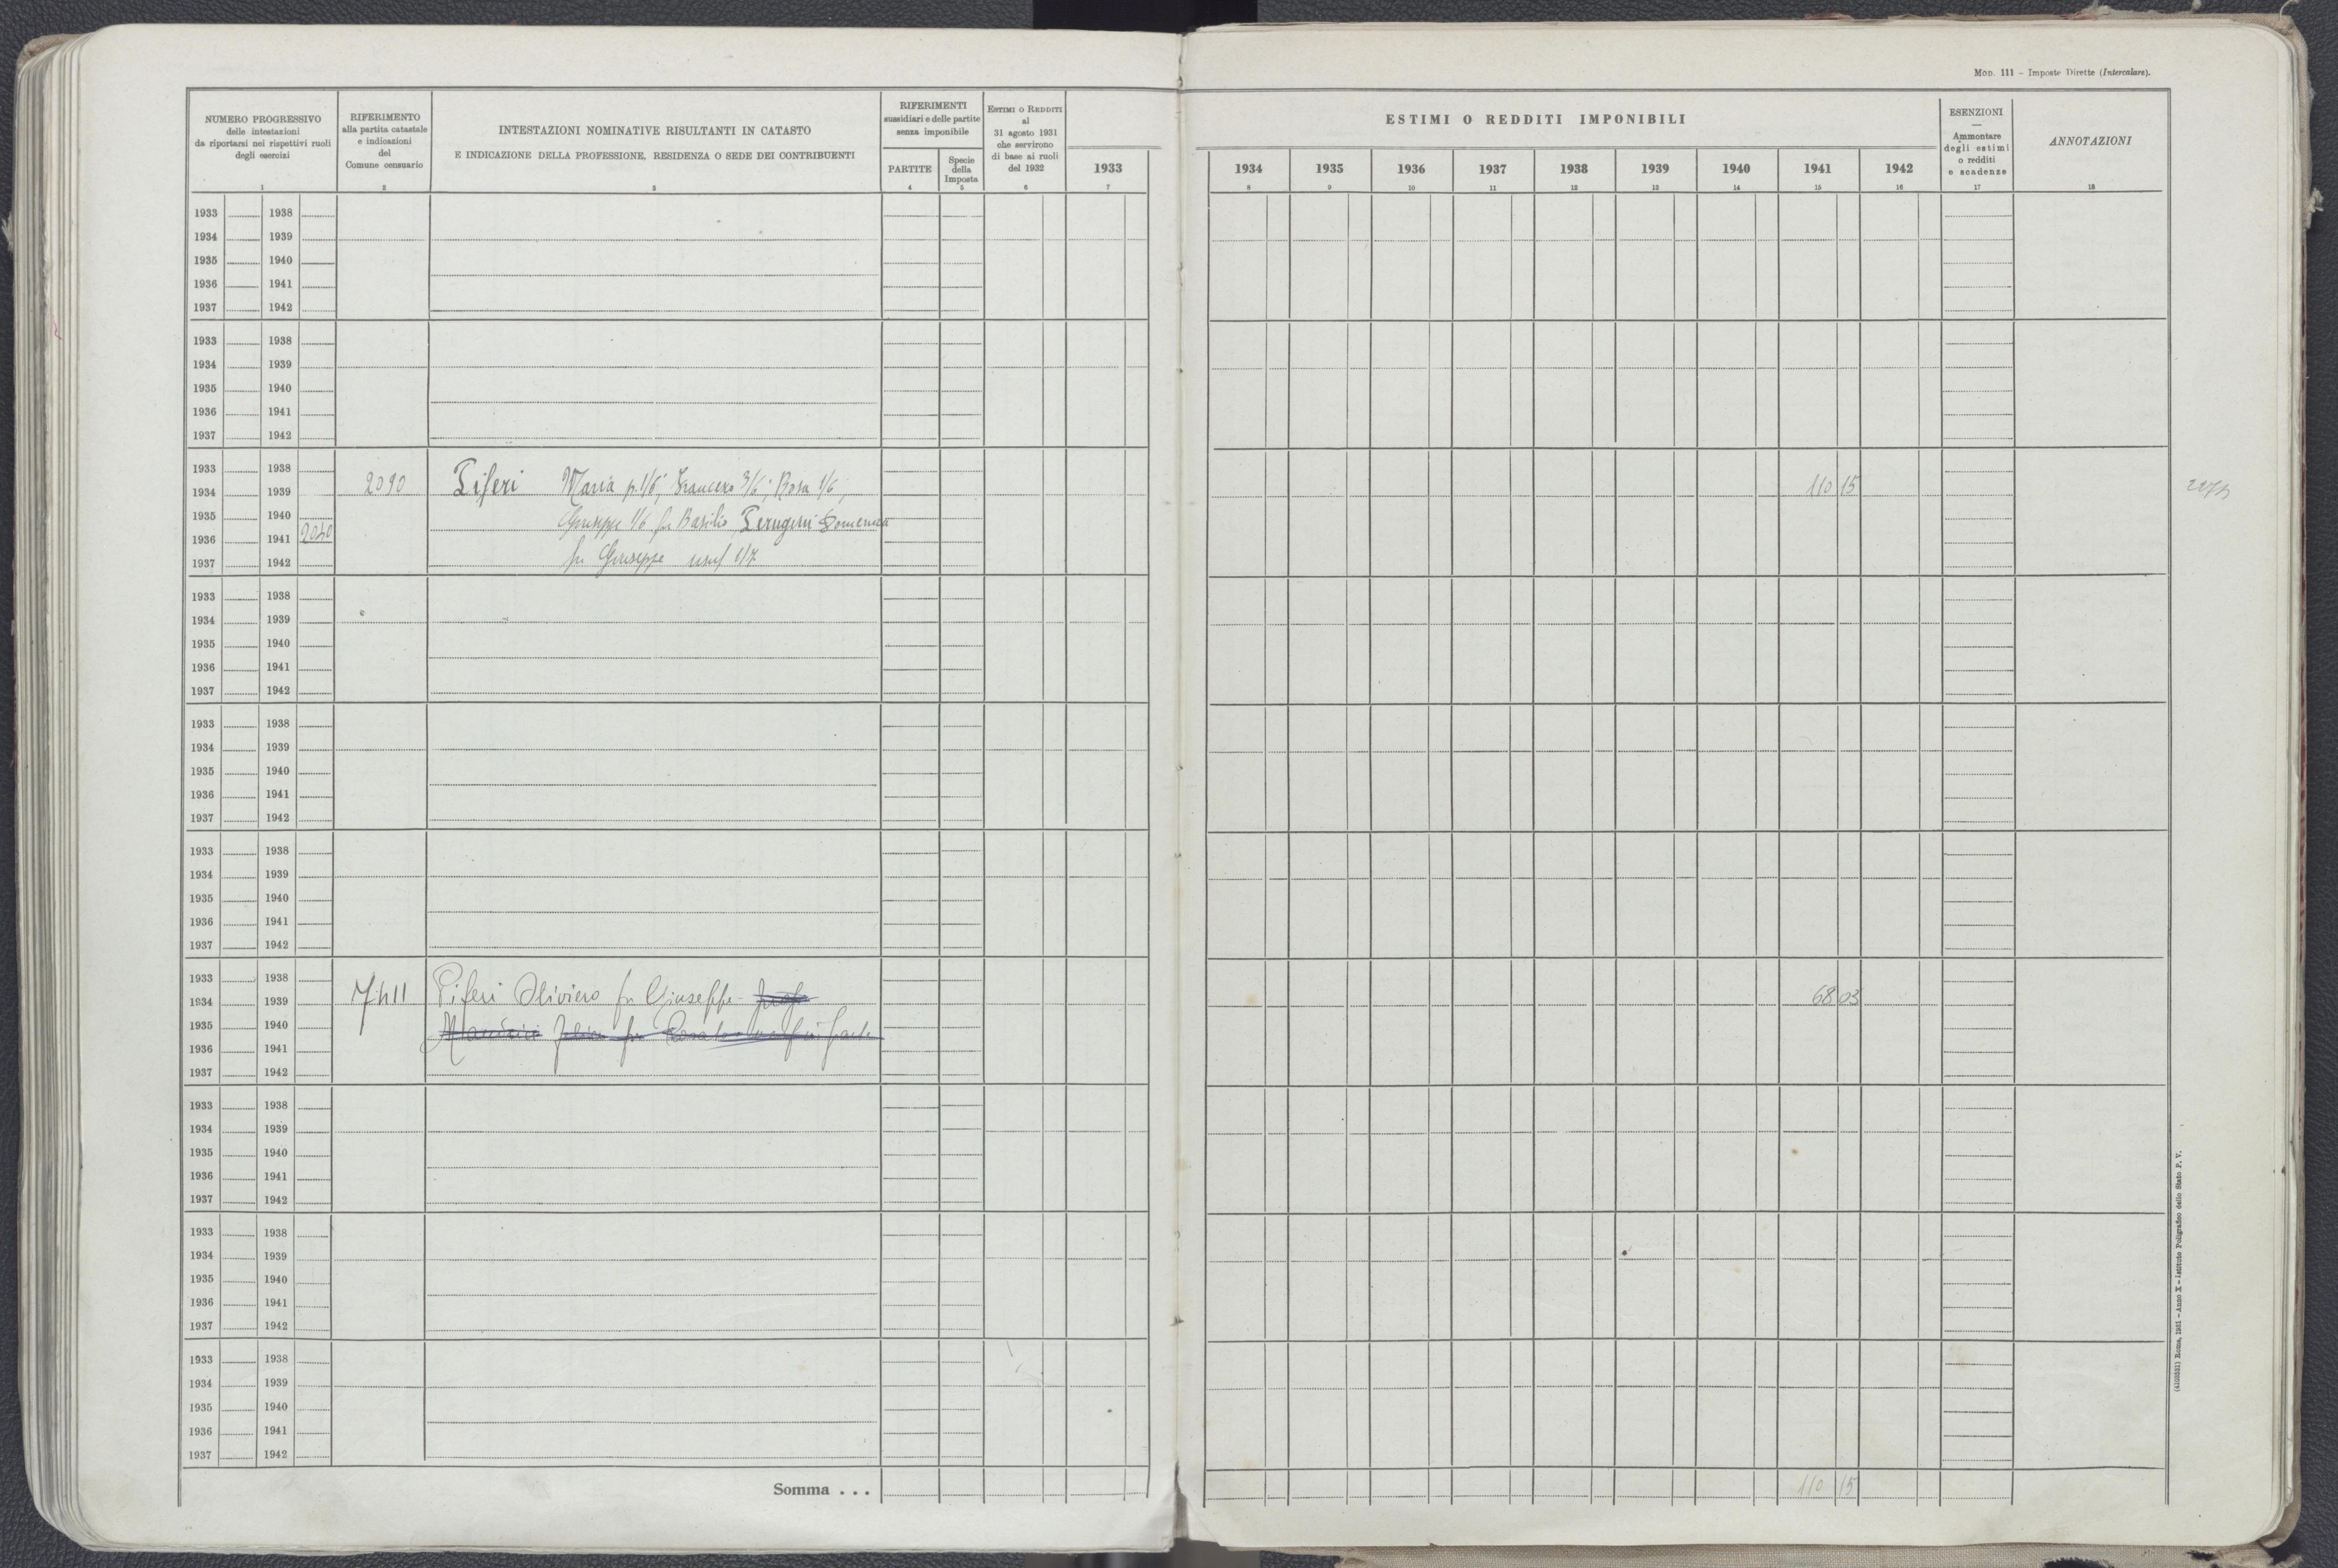 MOD. 111 – Imposte Dirette (Intercalare).
NUMERO PROGRESSIVO
delle intestazioni
da riportarsi nei rispettivi ruoli
degli esercizi
1
RIFERIMENTO
alla partita catastale
e indicazioni
del
Comune censuario
2
INTESTAZIONI NOMINATIVE RISULTANTI IN CATASTO
E INDICAZIONE DELLA PROFESSIONE, RESIDENZA O SEDE DEI CONTRIBUENTI
3
RIFERIMENTI
sussidiari e delle partite
senza imponibile
PARTITE
4
Specie
della
Imposta
5
ESTIMI O REDDITI
al
31 agosto 1931
che servirono
di base ai ruoli
del 1932
6
1933
7
ESTIMI O REDDITI IMPONIBILI
1934 1935 1936 1937 1938 1939 1940 1941 1942
8 9 10 11 12 13 14 15 16
ESENZIONI
—
Ammontare
degli estimi
o redditi
e scadenze
17
ANNOTAZIONI
18
1933 1938
1934 1939
1935 1940
1936 1941
1937 1942
1933 1938
1934 1939
1935 1940
1936 1941
1937 1942
1933 1938
1934 1939 2090 Piferi Maria p. 1/6; Francesco 3/6; Rosa 1/6; 110 15
1935 1940 Giuseppe 1/6 fu Basilio, Perugini Domenica
1936 1941 2040
1937 1942 fu Giuseppe usuf 1/7
1933 1938
1934 1939
1935 1940
1936 1941
1937 1942
1933 1938
1934 1939
1935 1940
1936 1941
1937 1942
1933 1938
1934 1939
1935 1940
1936 1941
1937 1942
1933 1938
1934 1939 Piferi Oliviero fu Giuseppe 68 03
1935 1940
1936 1941
1937 1942
1933 1938
1934 1939
1935 1940
1936 1941
1937 1942
1933 1938
1934 1939
1935 1940
1936 1941
1937 1942
1933 1938
1934 1939
1935 1940
1936 1941
1937 1942
Somma . . . 110 15
(4103331) Roma, 1931 – Anno X – Istituto Poligrafico dello Stato P. V.